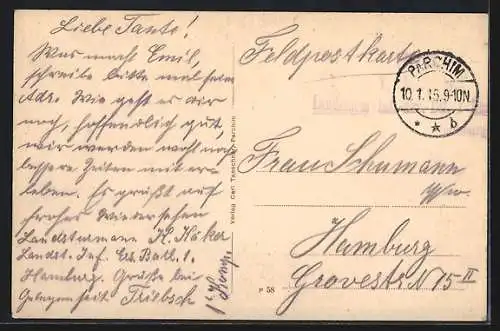 Liebe Tante!
Was macht Emil,
schreibe bitte mal seine
Adr. Wie geht es dir
noch, hoffendlich gut,
wir werden wohl noch
bessere Zeiten mit er-
leben. Es grüßt auf
frohes Wiedersehen
Landsturmmann H. Höker
Landst. Inf. Ers. Batl. 1.
Hamburg. Grüße bei
Gelegenheit Triebsch
1. Komp.
Verlag Carl Tanschner, Parchim
P 58
Feldpostkarte
PARCHIM
10.1.15.9-10N
* * b
Frau Schumann
Ww.
Hamburg
Grovestr. N 15 II